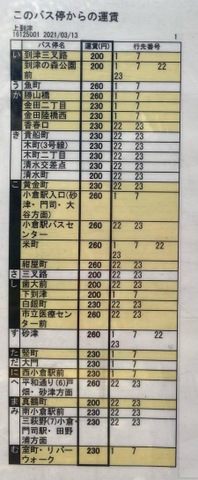 このバス停からの運賃
上到津
16125001 2021/03/13 1
バス停名 運賃(円) 行先番号
い 到津三叉路 200 1 7
到津の森公園前 200 1 7 22 23
う 魚町 260 1 7
か 勝山橋 260 1 7
金田二丁目 230 1 7
金田陸橋西 230 1 7
香春口 260 22 23
き 貴船町 230 22 23
木町(3号線) 230 22 23
木町二丁目 230 22 23
清水交差点 230 22 23
清水町 200 22 23
こ 黄金町 260 22 23
小倉駅入口(砂津・門司・大谷方面) 260 1 7
小倉駅バスセンター 260 22 23
米町 260 1 7 22 23
紺屋町 260 22 23
さ 三叉路 200 22 23
し 歯大前 200 22 23
下到津 200 1 7
白銀町 260 22 23
市立医療センター前 260 22 23
す 砂津 260 1 7 22 23
た 竪町 230 1 7
だ 大門 230 1 7
に 西小倉駅前 230 1 7
へ 平和通り(6)戸畑・砂津方面 260 22 23
ま 真鶴町 200 22 23
み 南小倉駅前 230 22 23
三萩野(7)小倉・門司駅・田野浦方面 230 22 23
む 室町・リバーウォーク 230 1 7